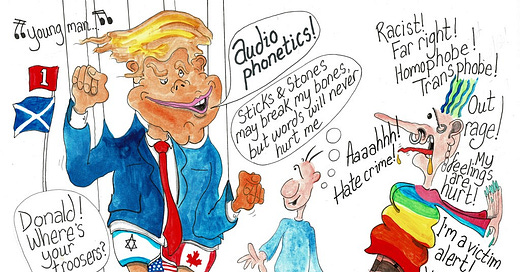 Young man..
1
audio
phonetics!
Sticks & Stones
may break my bones,
but words will never
hurt me
Donald!
Where's
your
troosers?
Aaaahhh!
Hate crime!
Racist!
Far right!
Homophobe!
Transphobe!
Out
rage!
My
feelings
are
hurt!
I'm a victim
alert!